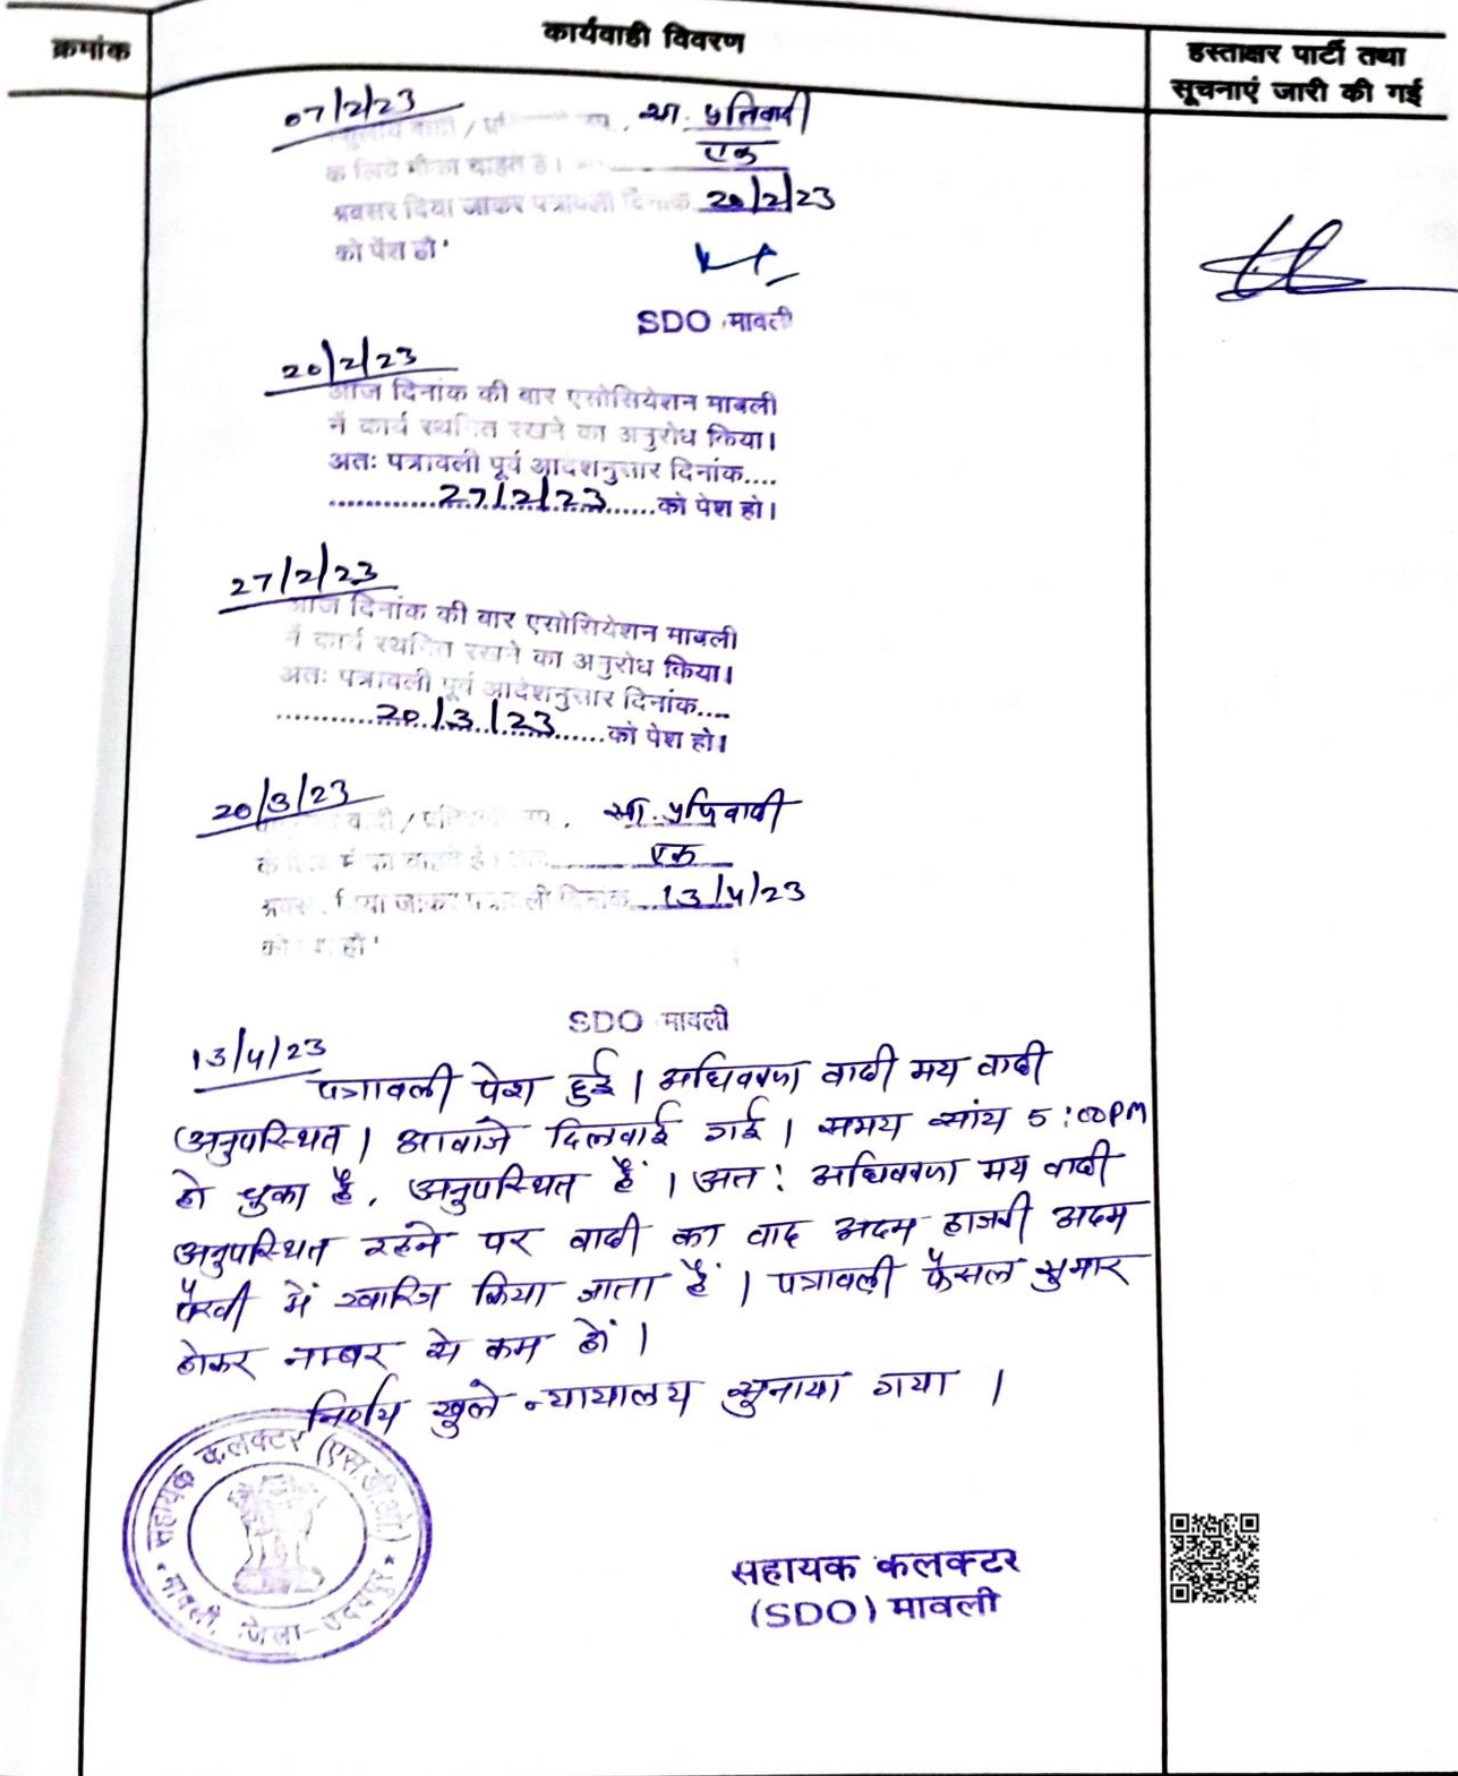 क्रमांक
कार्यवाही विवरण
हस्ताक्षर पार्टी तथा
सूचनाएं जारी की गई
07/2/23
वादी / सा. प्रतिवादी
के लिये मौका चाहते है। एक
अवसर दिया जाकर पत्रावली दिनांक 20/2/23
को पेश हो
SDO मावली
20/2/23
आज दिनांक की बार एसोसियेशन मावली
नें कार्य स्थगित रखने का अनुरोध किया।
अतः पत्रावली पूर्व आदेशनुसार दिनांक....
27/2/23 को पेश हो।
27/2/23
आज दिनांक की बार एसोसियेशन मावली
नें कार्य स्थगित रखने का अनुरोध किया।
अतः पत्रावली पूर्व आदेशनुसार दिनांक....
20/3/23 को पेश हो।
20/3/23
वादी / सा. प्रतिवादी
एक
जाकर पत्रावली दिनांक 13/4/23
को हो
SDO मावली
13/4/23
पत्रावली पेश हुई। अधिवक्ता वादी मय वादी
अनुपस्थित। आवाजे दिलवाई गई। समय सांय 5:00PM
हो चुका है, अनुपस्थित हैं। अतः अधिवक्ता मय वादी
अनुपस्थित रहने पर वादी का वाद अदम हाजरी अदम
पैरवी में खारिज किया जाता हैं। पत्रावली फैसल शुमार
होकर नम्बर से कम हों।
निर्णय खुले न्यायालय सुनाया गया।
सहायक कलक्टर (एस.डी.ओ.)
मावली, जिला-उदयपुर
सहायक कलक्टर
(SDO) मावली